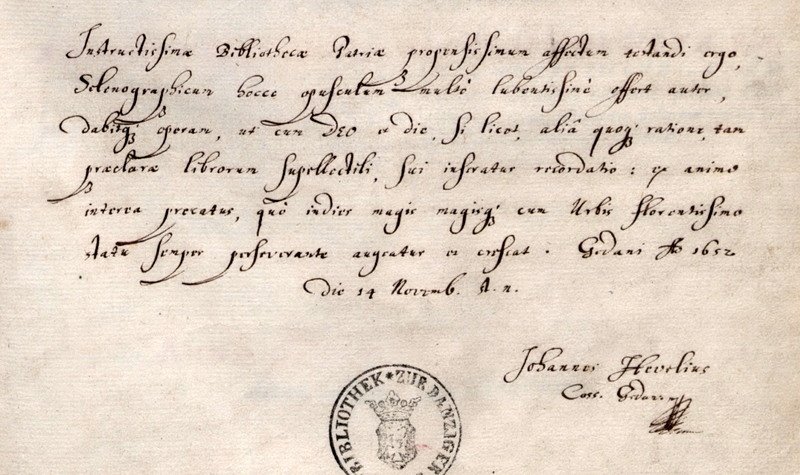 Instructissimæ Bibliothecæ Patriæ propensissimum affectum testandi ergo,
Selenographicum hocce opusculum multò lubentissimè offert autor,
dabitq; operam, ut cum DEO et die, si licet, aliâ quoq; ratione, tam
præclaræ librorum supellectili, sui inseratur recordatio: ex animo
interea precatus, quò indies magis magisq; cum Urbis florentissimo
statu semper perseverante augeatur et crescat. Gedani 1652
die 14 Novemb. st. n.
Johannes Hevelius
Coss. Gedanens
BIBLIOTHEK * ZUR DANZIGER